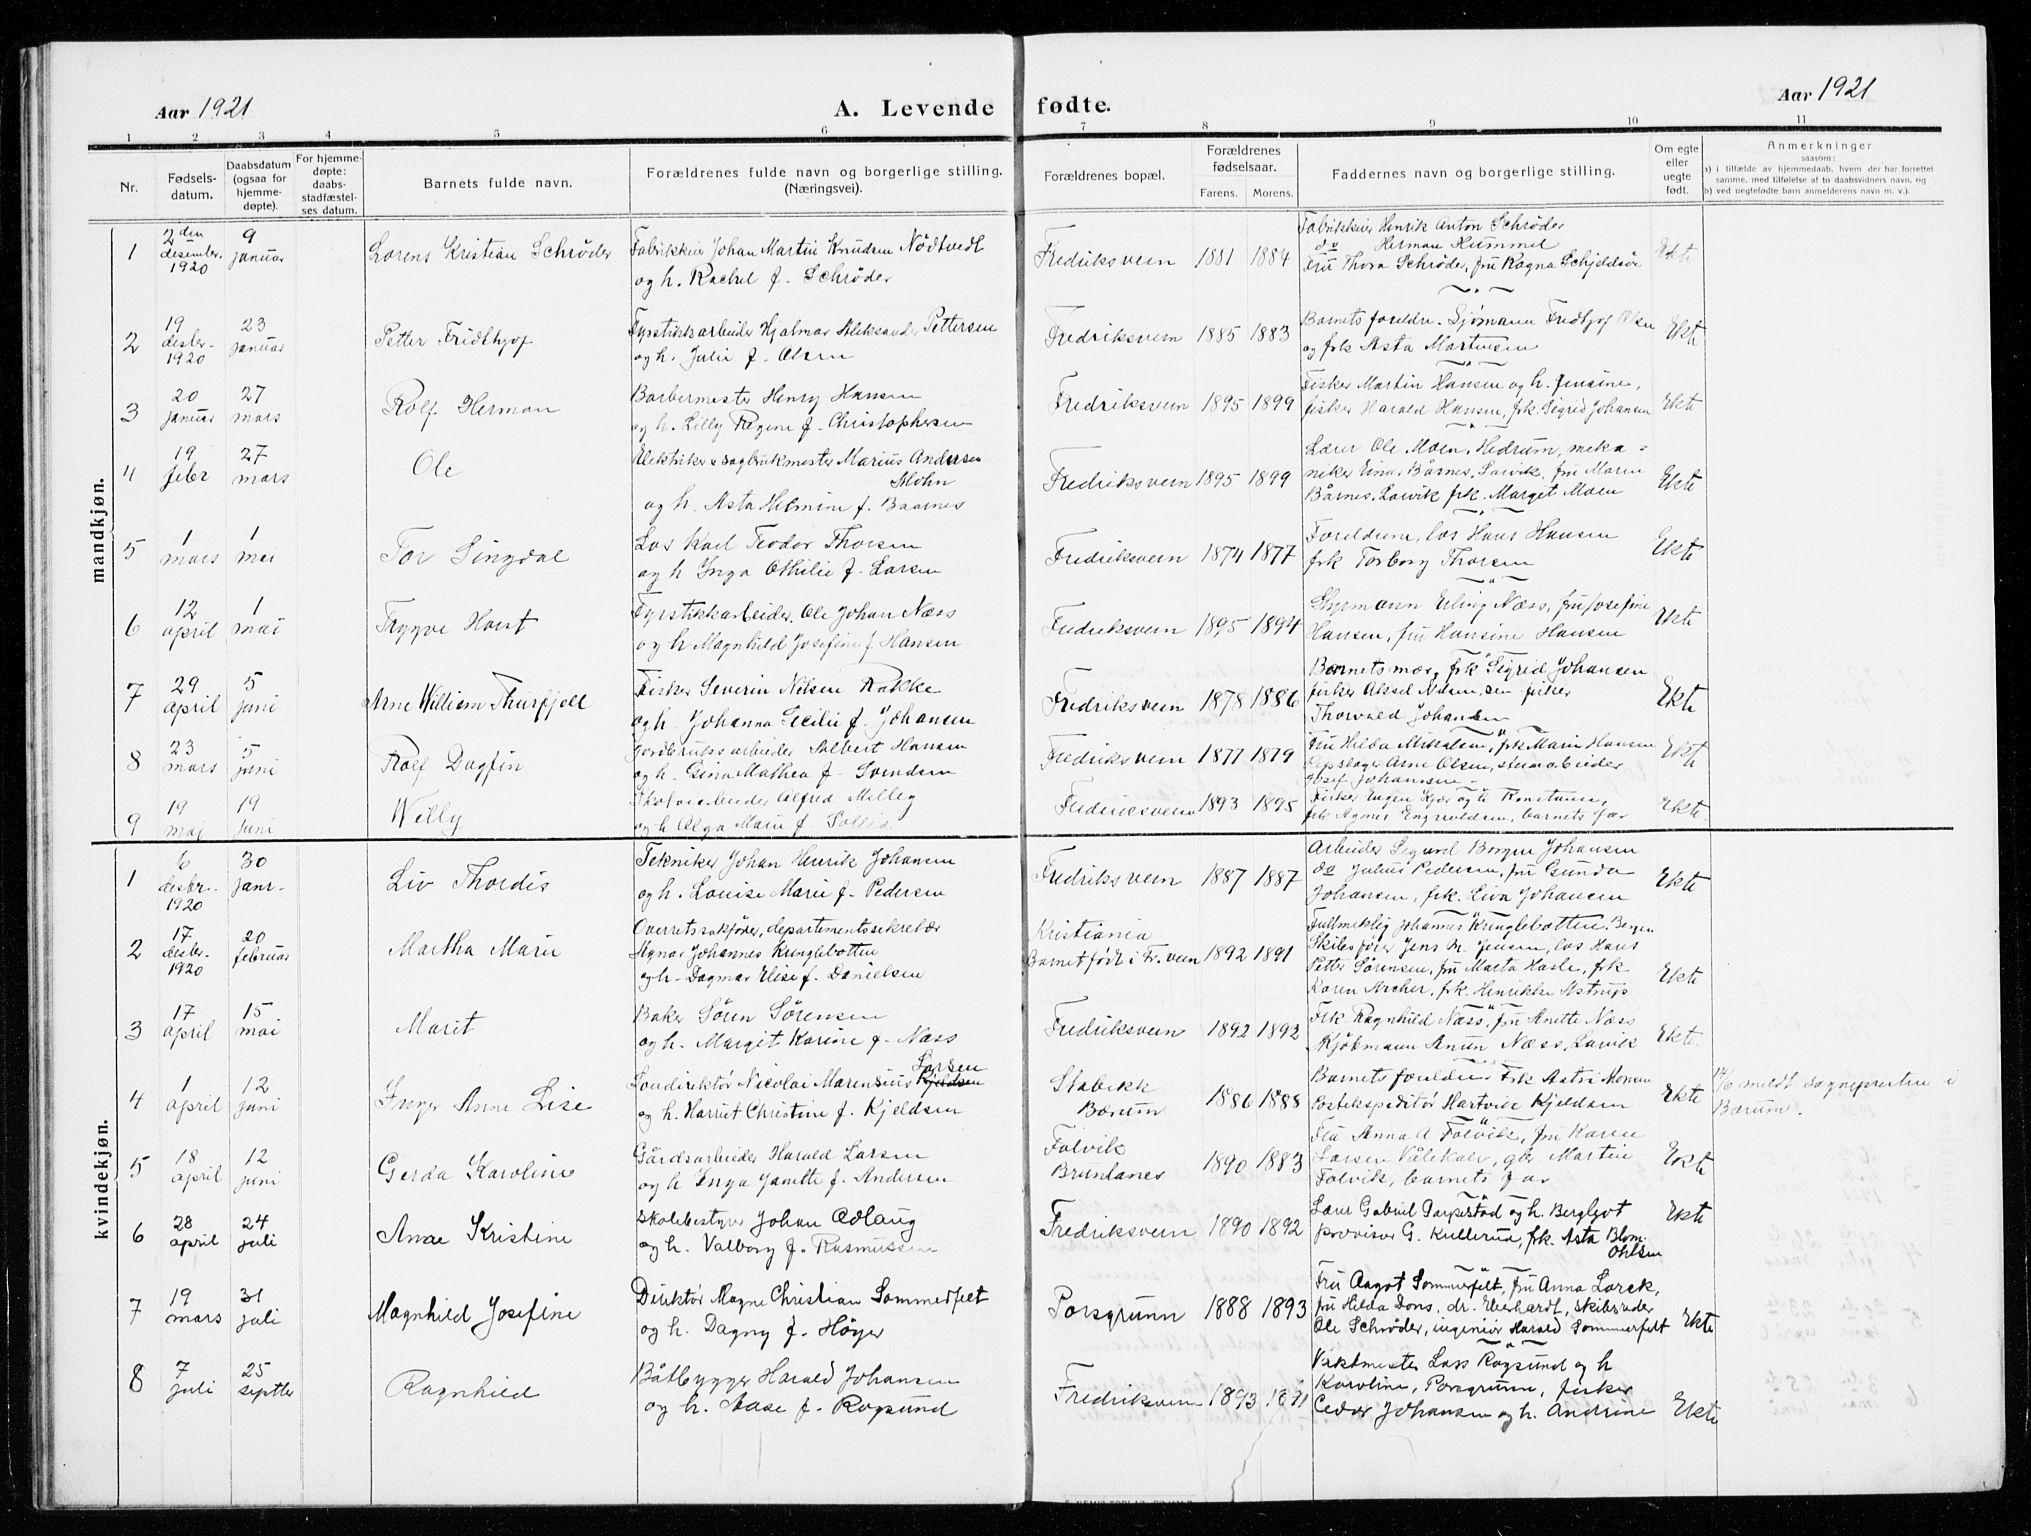 Aar 1921
A. Levende fødte.
Aar 1921
1 2 3 4 5 6 7 8 9 10 11
Nr.
Fødsels-
datum.
Daabsdatum
(ogsaa for
hjemme-
døpte).
For hjemme-
døpte:
daabs-
stadfæstel-
ses datum.
Barnets fulde navn.
Forældrenes fulde navn og borgerlige stilling.
(Næringsvei).
Forældrenes bopæl.
Forældrenes
fødselsaar.
Farens. Morens.
Faddernes navn og borgerlige stilling.
Om egte
eller
uegte
født.
Anmerkninger
saasom:
a) i tilfælde av hjemmedaab, hvem der har forrettet
samme, med tilføielse af to daabsvidners navn, og
b) ved uegtefødte barn anmelderens navn m. v.).
mandkjøn.
1
2den
desember
1920
9
januar
Lorens Kristian Schrøder
Fabrikkeier Johan Martin Knudsen Nödtvedt
og h. Rachel f. Schrøder
Fredriksvern 1881 1884
Fabrikkeier Henrik Anton Schrøder
do Herman Hummel
Fru Thora Schrøder, fru Ragna Schjeldsøe
Ekte
2
19
desbr-
1920
23
januar
Petter Fridthjof
Fyrstikkarbeider Hjalmar Aleksander Pettersen
og h. Julie f. Olsen
Fredriksvern 1885 1883
Barnets foreldre. Sjømann Fridtjof Olsen
og frk Asta Martinsen
Ekte
3
20
januar
27
mars
Rolf Herman
Barbermester Henry Hansen
og h. Lilly Regine f. Christophersen
Fredriksvern 1895 1899
Fisker Martin Hansen og h. Jensine,
fisker Harald Hansen, frk. Sigrid Johansen
Ekte
4
19
febr
27
mars
Ole
Elektriker & sagbrukmester Marius Andersen
Mohn
og h. Asta Helmine f. Baarnes
Fredriksvern 1895 1899
Lærer Ole Moen, Hedrum, meka-
niker Einar Bårnes, Larvik, fru Maren
Bårnes, Larvik frk. Margit Moen
Ekte
5
1
mars
1
mai
Tor Singdal
Los Karl Teodor Thorsen
og h Inga Othilie f. Larsen
Fredriksvern 1874 1877
Foreldrene, los Hans Hansen
frk Torborg Thorsen
Ekte
6
12
april
1
mai
Trygve Horst
Fyrstikkarbeider. Ole Johan Næss
og h Magnhild Josefine f Hansen
Fredriksvern 1895 1894
Styrmann Erling Næss, fru Josefine
Hansen, fru Hansine Hansen
Ekte
7
29
april
5
juni
Arne William Thurfjell
Fisker Severin Nilsen Rakke
og h. Johanna Secilie f. Johansen
Fredriksvern 1878 1886
Barnets mor, frk Sigrid Johansen
fisker Aksel Nilsen, sen fisker
Thorvald Johansen
Ekte
8
23
mars
5
juni
Rolf Dagfin
Jordbruksarbeider Albert Hansen
og h. Gina Mathea f. Svendsen
Fredriksvern 1877 1879
Fru Hilda Mikalsen, frk Marie Hansen
Repslager Arne Olsen, stenarbeider
Josef Johannsen
Ekte
9
19
maj
19
juni
Willy
Skotøiarbeider Alfred Milleg
og h Olga Marie f.
Fredriksvern 1893 1895
Fisker Eugen Kjær og h Konstanse,
frk Agnes Engvoldsen, barnets far
Ekte
kvindekjøn.
1
6
desbr-
1920
30
janr-
Liv Thordis
Tekniker Johan Henrik Johansen
og h. Louise Marie f. Pedersen
Fredriksvern 1887 1887
Arbeider Sigurd Borgen Johansen
do Julius Pedersen, fru Gunda
Johansen, frk. Liva Johansen
Ekte
2
17
desbr-
1920
20
februar
Martha Marie
Overretssakfører, departementssekretær
Agnar Johannes Kringlebotten
og h. Dagmar Elise f. Danielsen
Kristiania
Barnet født i Fr.vern 1892 1891
Fullmektig Johannes Kringlebotten. Bergen
Skibsfører Jens M. Jensen, los Hans
Petter Sørensen, fru Marta Hasle, frk.
Karen Archer, frk. Henrikke Astrup
Ekte
3
17
april
15
mai
Marit
Baker Sören Sörensen
og h. Margit Karine f. Næss
Fredriksvern 1892 1892
Frk Ragnhild Næss, fru Anette Næss
Kjöbmann Anun Næss, Larvik
Ekte.
4
1
april
12
juni
Inger Anne Lise
Larsen
Soudirektör Nicolai Marensius Kjeldsen
og h. Harriet Christine f. Kjeldsen
Stabekk
Bærum 1886 1888
Barnets foreldre Frk Astri Monsen
Postekspeditör Hartvik Kjeldsen
Ekte
14/6 meldt sogneprestin i
Bærum.
5
18
april
12
juni
Gerda Karoline
Gårdsarbeider Harald Larsen
og h Inga Janette f. Andersen
Folvik
Brunlanes 1890 1883
Fru Anna A Folvik, fru Karen
Larsen, gbr Martin
Folvik, barnets far
Ekte
6
28
april
24
juli
Anne Kristine
Skolebestyrer Johan Odlaug
og h. Valborg f. Rasmussen
Fredriksvern 1890 1892
Lærer Gabriel Tarpestad og h. Bergljot
provisor G. Kullerud, frk. Asta Blom-
Ohlsen
Ekte
7
19
mars
31
juli
Magnhild Josefine
Direktør Magne Christian Sommerfelt
og h. Dagny f. Høyer
Porsgrunn 1888 1893
Fru Aagot Sommerfelt, fru Anna Larck,
fru Hilda Dons, dr. Eberhardt, skibsreder
Ole Schrøder, ingeniør Harald Sommerfelt
Ekte
8
7
juli
25
septbr
Ragnhild
Båtbygger Harald Johansen
og h. Aase f. Rogsund
Fredriksvern 1893 1891
Vaktmester Lars Rogsund og h
Karoline, Porsgrunn, fisker
Cedor Johansen og h. Andrine
Ekte